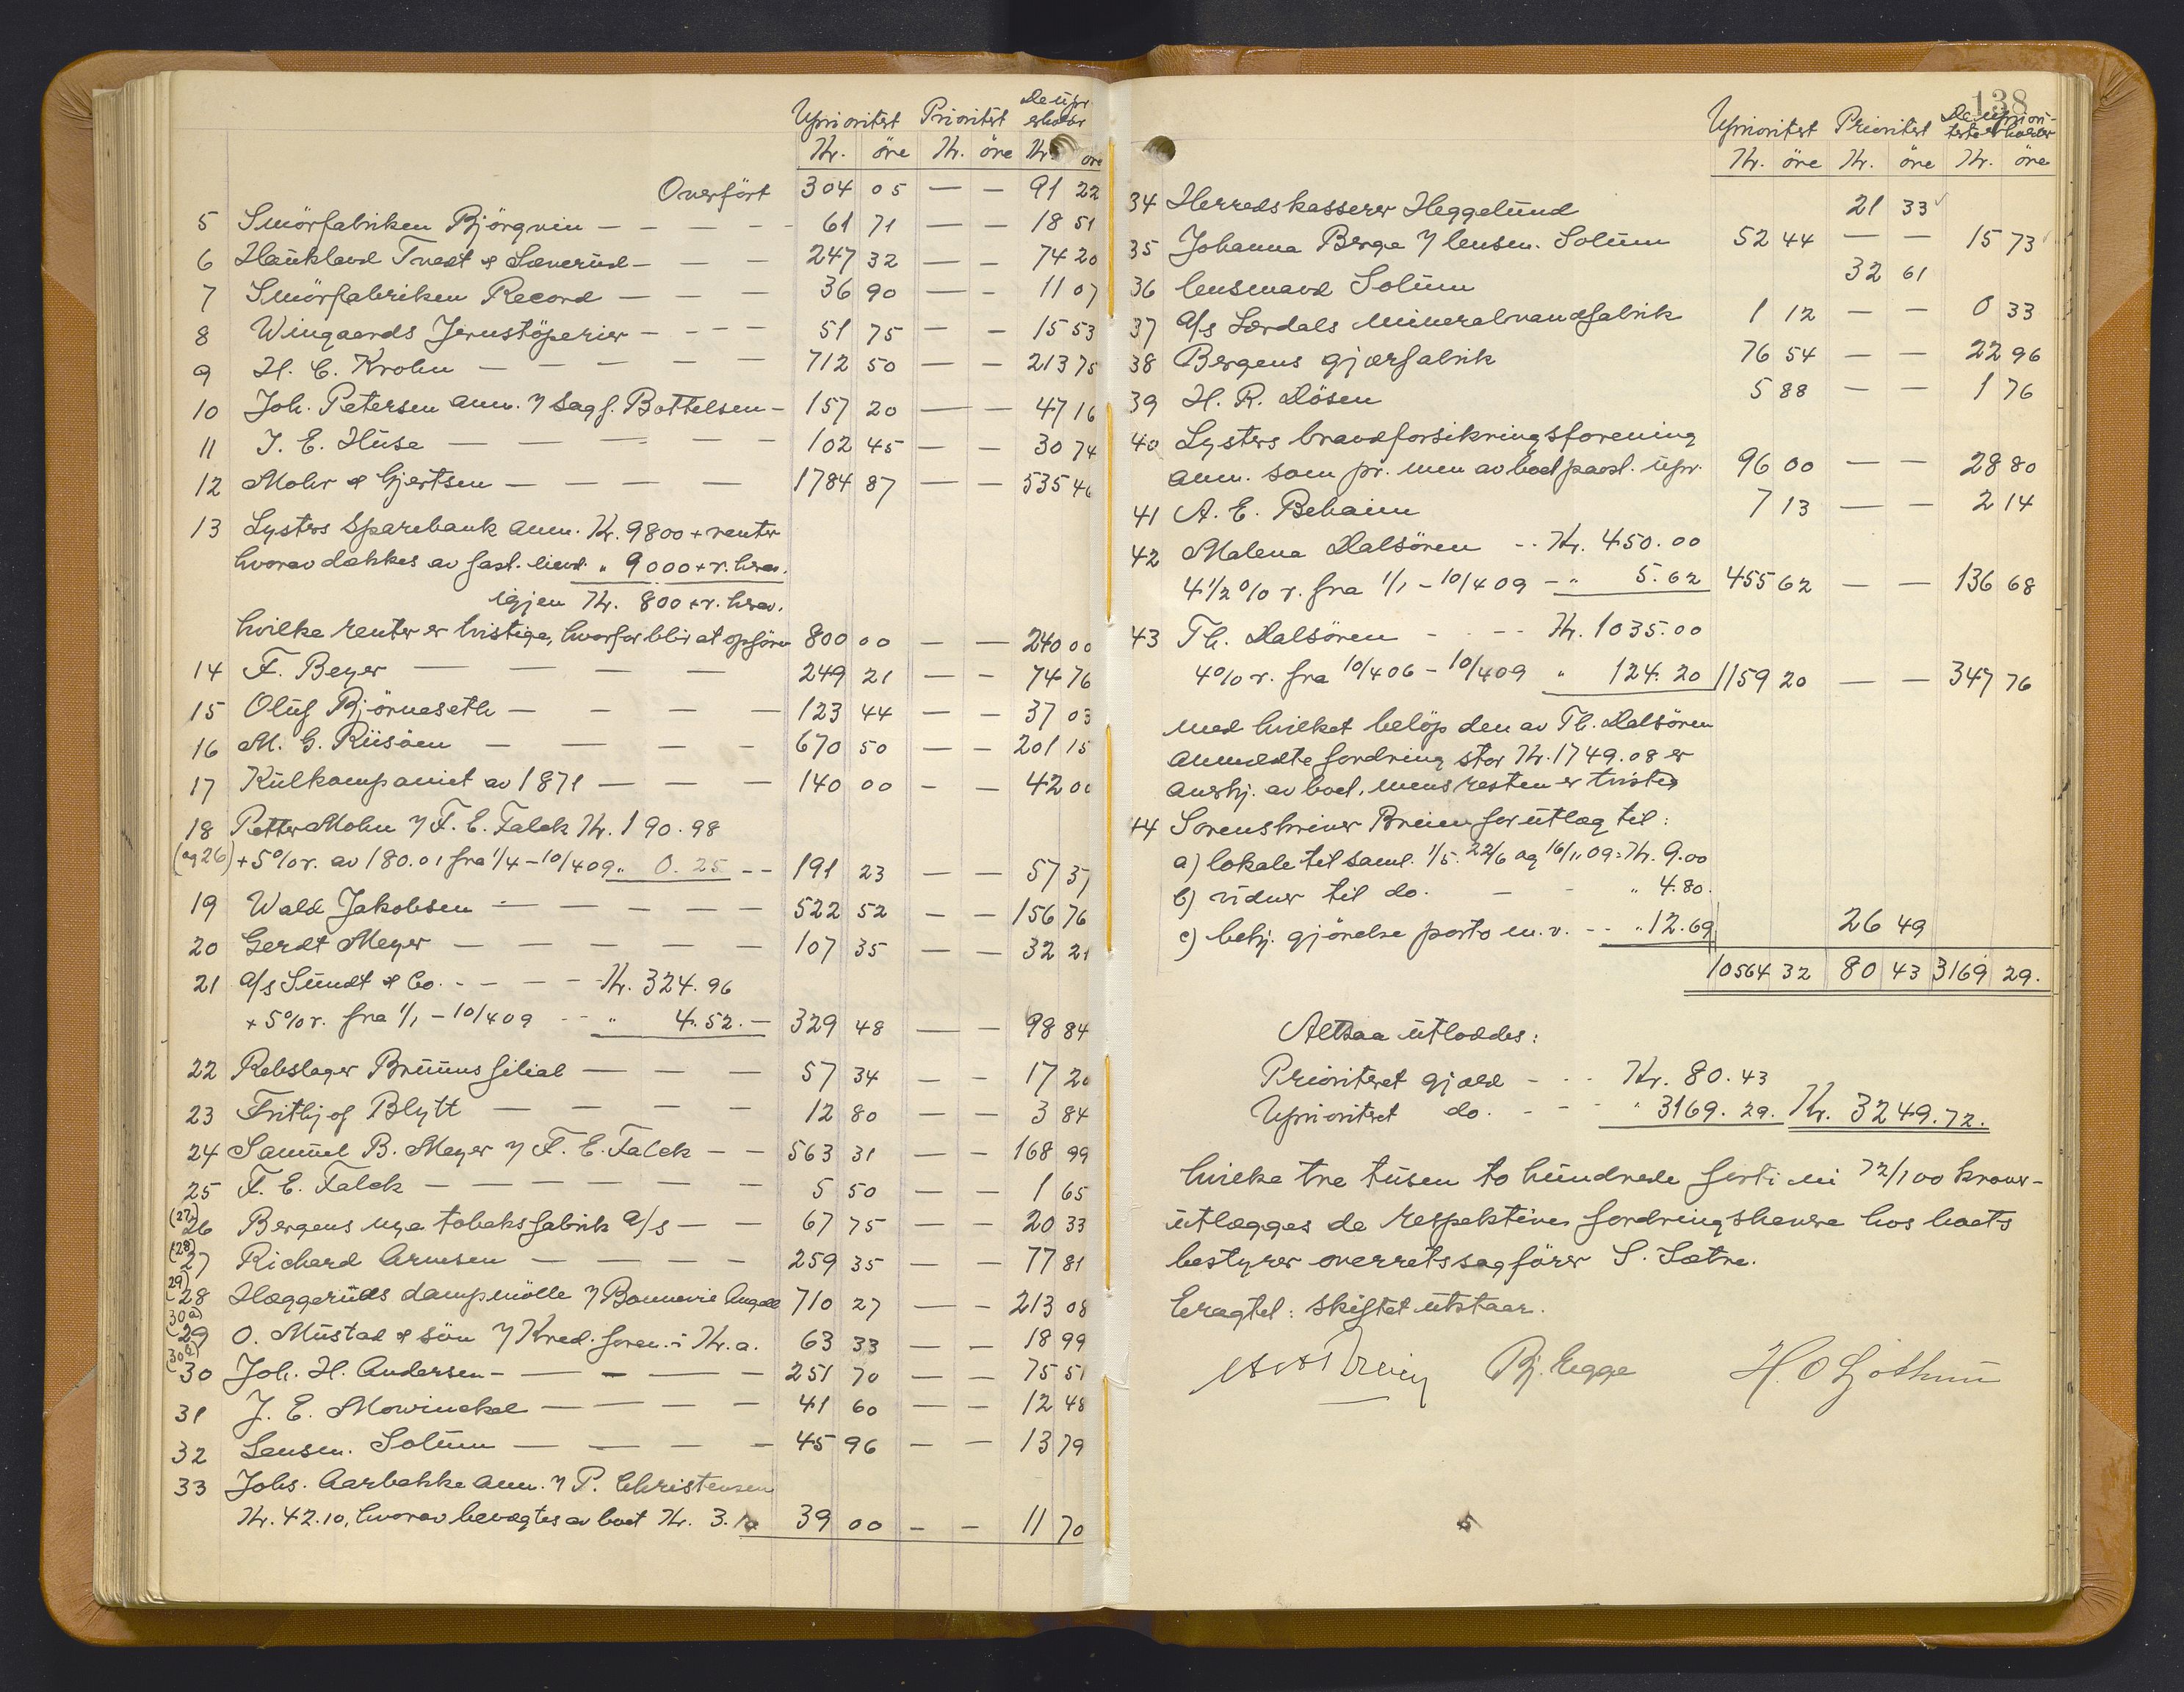 Uprioritet Prioritet De upr. erholder
Kr. öre Kr. öre Kr. öre
Overfört 304 05 — — 91 22
5 Smörfabriken Björgvin — — — — — 61 71 — — 18 51
6 Haukland Tvedt & Sæverud — — — 247 32 — — 74 20
7 Smörfabriken Record — — — 36 90 — — 11 07
8 Wingaards Jernstöperier — — — — 51 75 — — 15 53
9 H. C. Krohn — — — — — 712 50 — — 213 75
10 Joh. Petersen anm. v/ sagf. Bottelsen — 157 20 — — 47 16
11 J. E. Huse — — — — — 102 45 — — 30 74
12 Mohr & Gjertsen — — — — 1784 87 — — 535 46
13 Lysters Sparebank anm. Kr. 9800 + renter
hvorav dækkes av fast. eiend. " 9000 + r. herav.
igjen Kr. 800 + r. herav.
hvilke renter er tvistige, hvorfor blir at opföre 800 00 — — 240 00
14 F. Beyer — — — — 249 21 — — 74 76
15 Oluf Björneseth — — — — 123 44 — — 37 03
16 M. G. Riisöen — — — — 670 50 — — 201 15
17 Kulkompaniet av 1871 — — — 140 00 — — 42 00
18 Petter Mohn v/ F. E. Falck Kr. 190.98
(og 26) + 5% r. av 180.01 fra 1/4 - 10/4 09 " 0.25 — — 191 23 — — 57 37
19 Wald Jakobsen — — — — — 522 52 — — 156 76
20 Gerdt Meyer — — — — — 107 35 — — 32 21
21 a/s Sundt & Co. - - - - Kr. 324.96
+ 5% r. fra 1/1 - 10/4 09 - - " 4.52. — 329 48 — — 98 84
22 Rebslager Bruuns filial — — — 57 34 — — 17 20
23 Frithjof Blytt — — — — 12 80 — — 3 84
24 Samuel B. Meyer v/ F. E. Falck — — 563 31 — — 168 99
25 F. E. Falck — — — — — — 5 50 — — 1 65
(27) 26 Bergens nye tobaksfabrik a/s — — 67 75 — — 20 33
(28) 27 Richard Arnesen — — — — 259 35 — — 77 81
(29) 28 Hæggeruds dampmölle v/ Bonnevie Angell 710 27 — — 213 08
(30a) 29 O. Mustad & sön v/ Kred. foren. i Kr.a. 63 33 — — 18 99
(30b) 30 Joh. H. Andersen — — — — — 251 70 — — 75 51
31 J. E. Mowinckel — — — — 41 60 — — 12 48
32 Lensm. Solum — — — — 45 96 — — 13 79
33 Johs. Aarbakke anm. v/ P. Christensen
Kr. 42.10, hvorav benegtes av boet Kr. 3.10 39 00 — — 11 70
138
Uprioritet Prioritet De uprioriterte erholder
Kr. öre Kr. öre Kr. öre
34 Herredskasserer Heggelund 21 33
35 Johanna Berge v/ lensm. Solum 52 44 — — 15 73
36 lensmand Solum 32 61
37 a/s Lærdals mineralvandfabrik 1 12 — — 0 33
38 Bergens gjærfabrik 76 54 — — 22 96
39 H. R. Dösen 5 88 — — 1 76
40 Lysters brandforsikringsforening
anm. som pr. men av boet paast. upr. 96 00 — — 28 80
41 A. E. Behaim 7 13 — — 2 14
42 Malena Dalsören - - Kr. 450.00
4 1/2 % r. fra 1/1 - 10/4 09 - " 5.62 455 62 — — 136 68
43 Th. Dalsören - - - - Kr. 1035.00
4% r. fra 10/4 06 - 10/4 09 " 124.20 1159 20 — — 347 76
med hvilket belöp den av Th. Dalsören
anmeldte fordring stor Kr. 1749.08 er
anerkj. av boet, mens resten er tvistig
44 Sorenskriver Breien for utlæg til:
a) lokale til saml. 1/5. 22/6 og 16/11 09 = Kr. 9.00
b) vidner til do. — - " 4.80.
c) bekj. gjörelse porto m. v. - - " 12.69 26 49
10564 32 80 43 3169 29.
Altsaa utloddes:
Prioritet gjæld - - - Kr. 80.43
Uprioritet do. - - - " 3169.29. Kr. 3249.72.
hvilke tre tusen to hundrede forti ni 72/100 kroner
utlægges de respektive fordringshavere hos boets
bestyrer overretssagförer S. Sætre.
Eragtet: Skiftet utstaar.
Bj. Egge